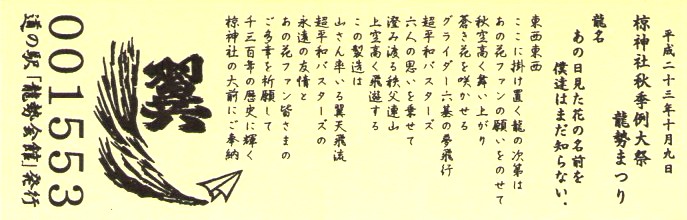 平成二十三年十月九日
椋神社秋季例大祭
龍勢まつり
龍名
あの日見た花の名前を
僕達はまだ知らない。
東西東西
ここに掛け置く龍の次第は
あの花ファンの願いをのせて
秋空高く舞い上がり
蒼き花を咲かせる
グライダー六基の夢飛行
超平和バスターズ
六人の思いを乗せて
澄み渡る秩父連山
上空高く飛遊する
この製造は
山さん率いる翼天飛流
超平和バスターズの
永遠の友情と
あの花ファン皆さまの
ご多幸を祈願して
千三百年の歴史に輝く
椋神社の大前にご奉納
翼
001553
道の駅「龍勢会館」発行